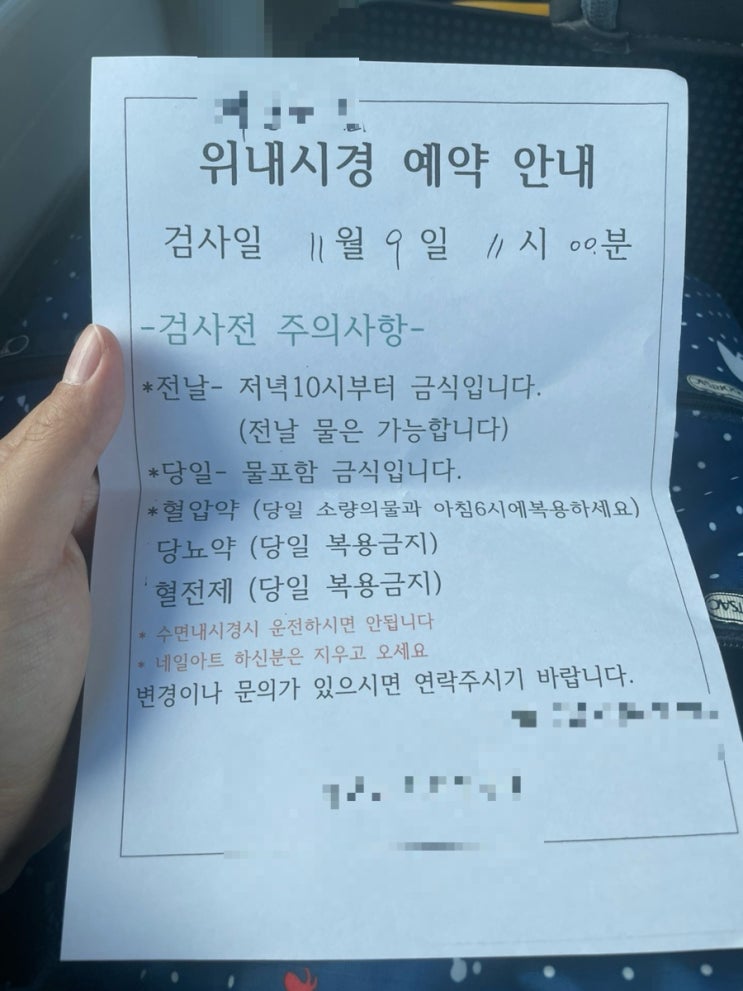 위내시경 예약 안내
검사일 11월 9일 11시 00분
-검사전 주의사항-
*전날- 저녁10시부터 금식입니다.
(전날 물은 가능합니다)
*당일- 물포함 금식입니다.
*혈압약 (당일 소량의물과 아침6시에복용하세요)
당뇨약 (당일 복용금지)
혈전제 (당일 복용금지)
* 수면내시경시 운전하시면 안됩니다
* 네일아트 하신분은 지우고 오세요
변경이나 문의가 있으시면 연락주시기 바랍니다.